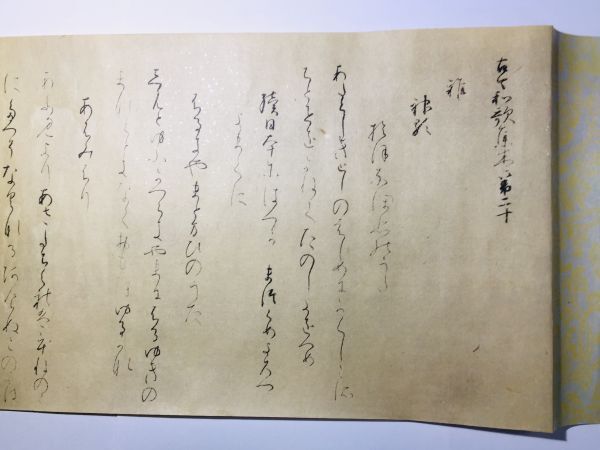 古今和歌集巻第二十
雑
神歌
おほなほひのうた
あたらしきとしのはしめにかくしこそ
ちとせをかねてたのしきをつめ
續日本紀にはつかへまつらめよろつ
よまてに
ふるきやまとまひのうた
しもとゆふかつらきやまにふるゆきの
まなくときなくおもほゆるかな
あふみふり
あふみよりあさたちくれはうねのの
にたつそなくなるあけぬこのよは